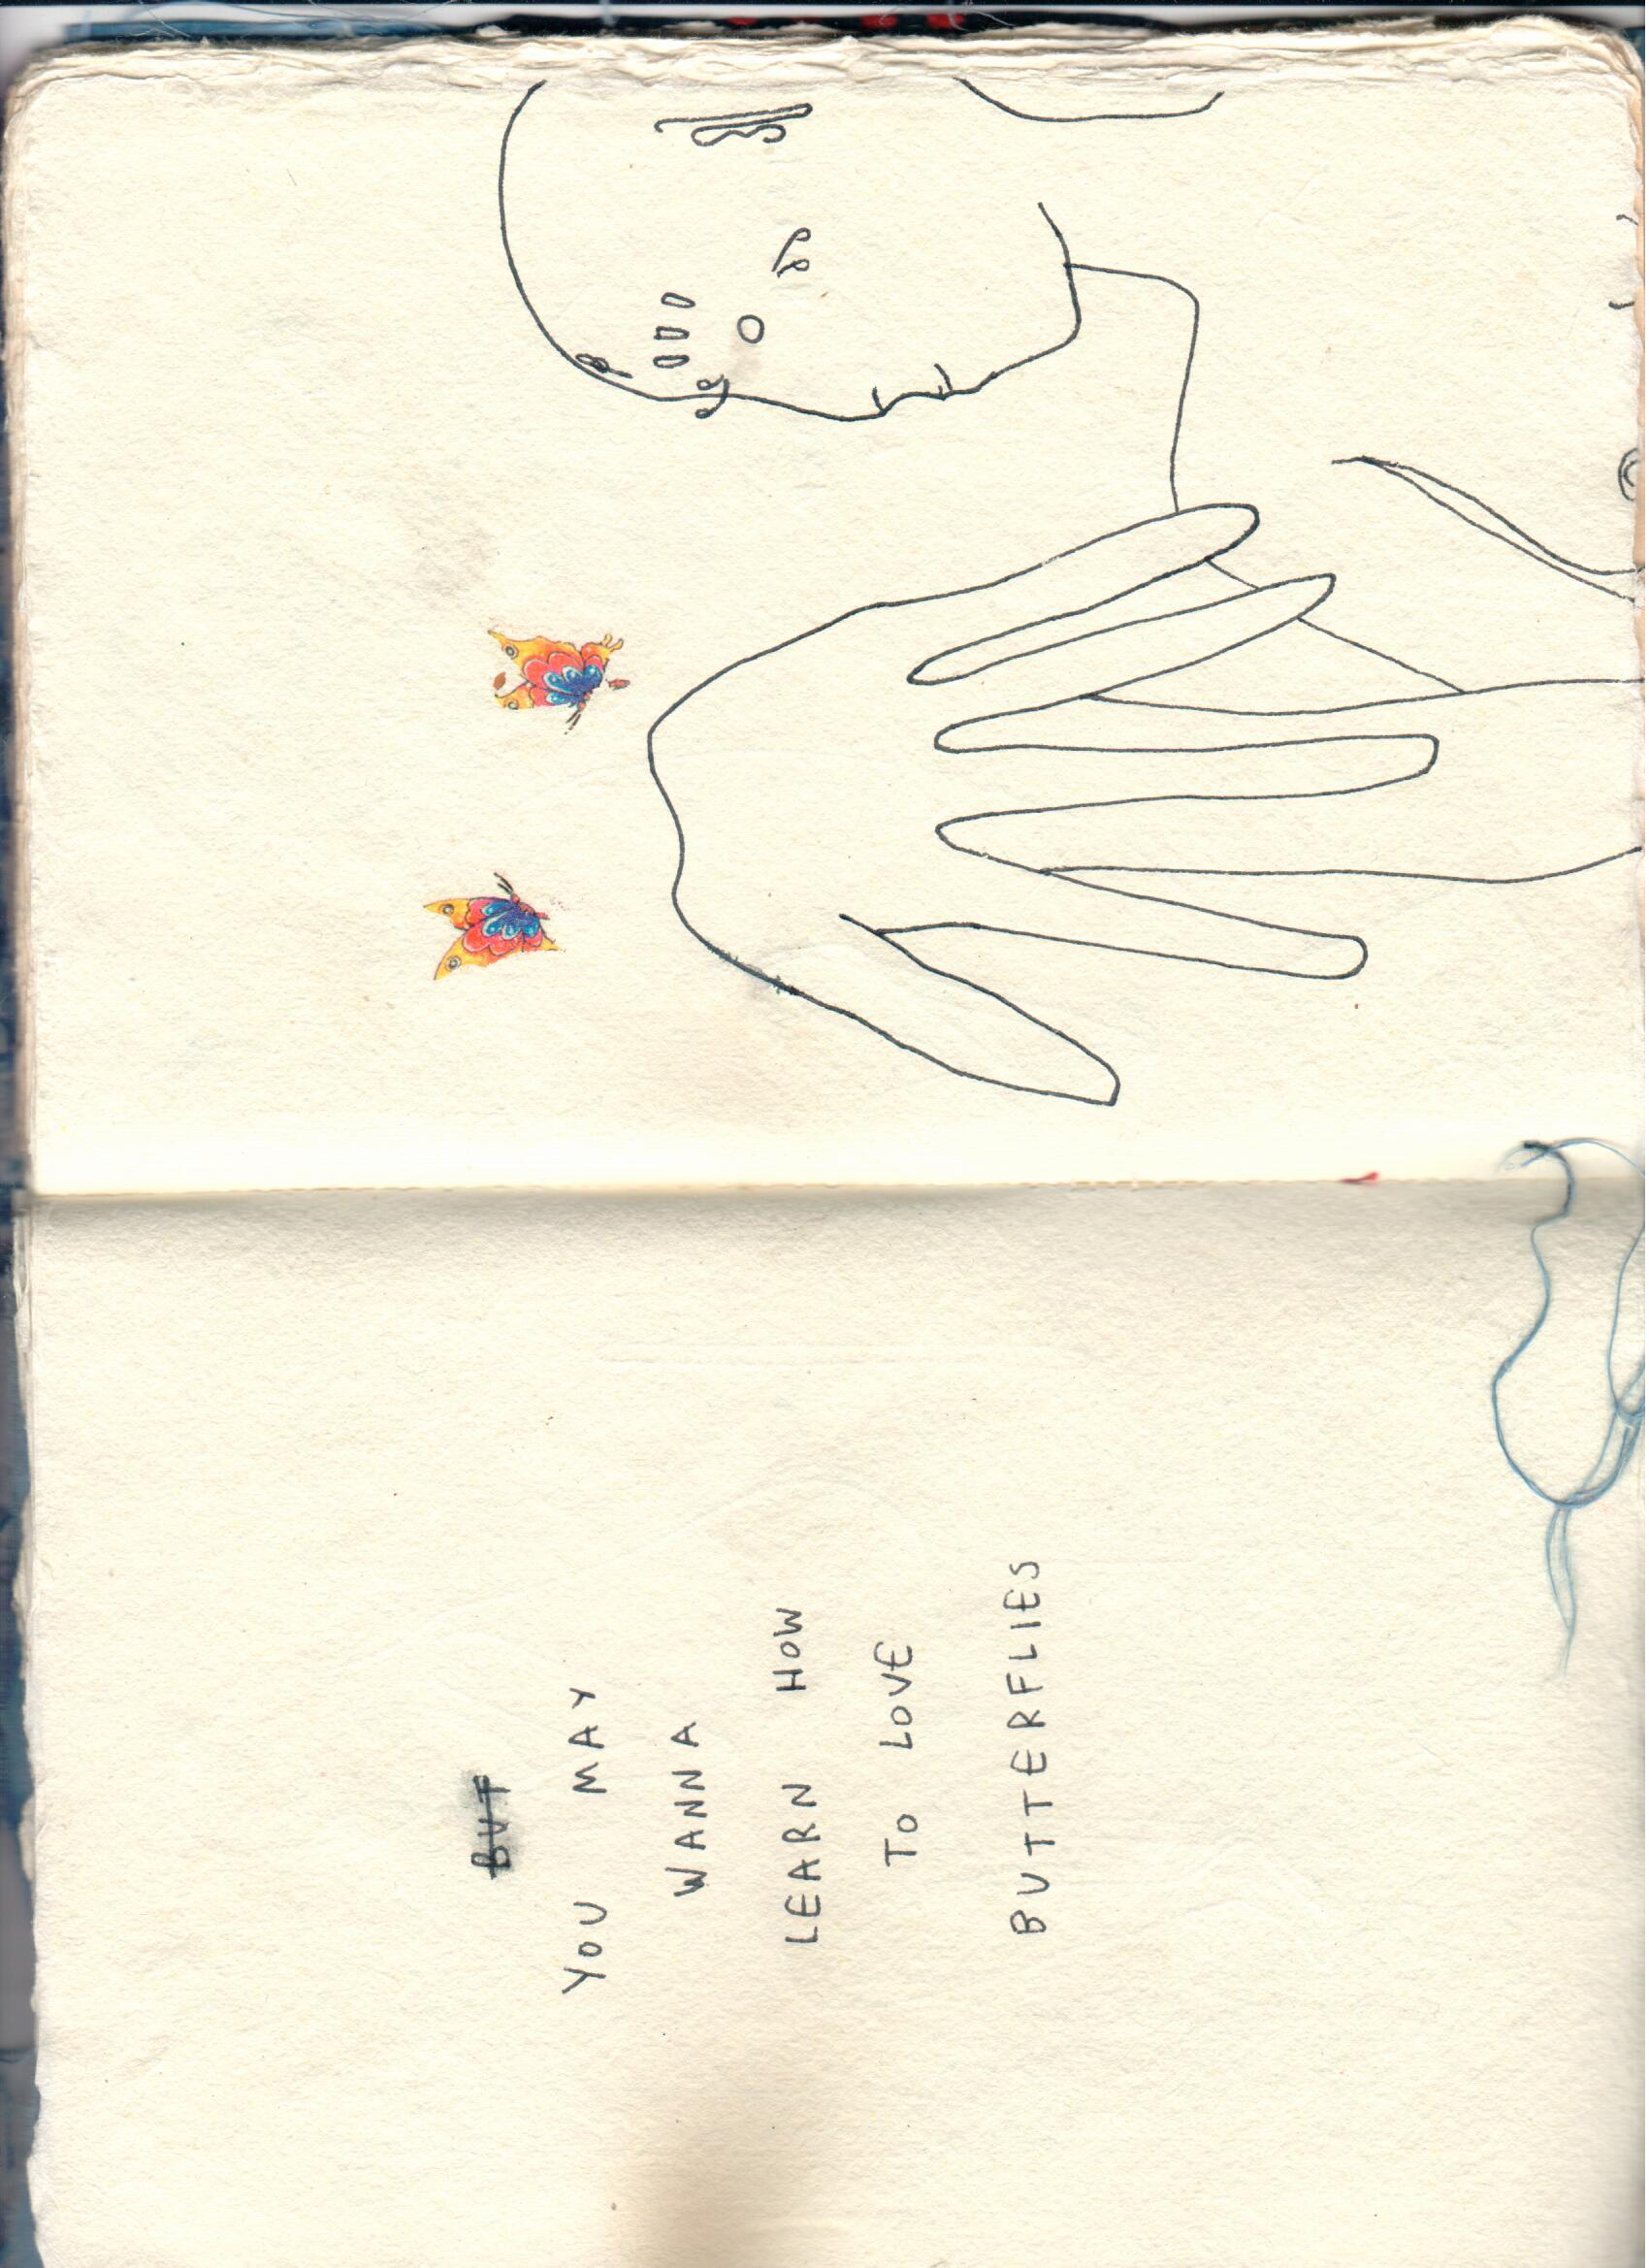 BUT
YOU MAY
WANNA
LEARN HOW
TO LOVE
BUTTERFLIES